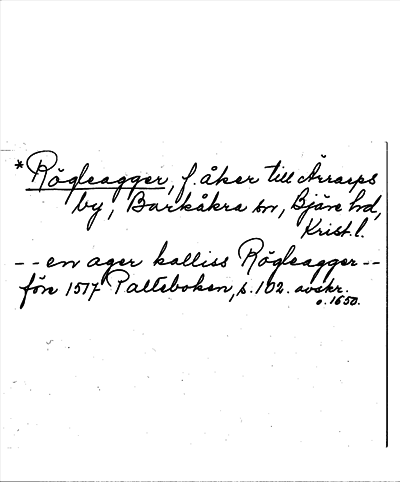 *Rögleagger, f. åker till Ärrarps
by, Barkåkra sn, Bjäre hd,
Krist. l.
-- en ager kalliss Rögleagger --
före 1517 Palteboken, s. 102. avskr.
o. 1650.